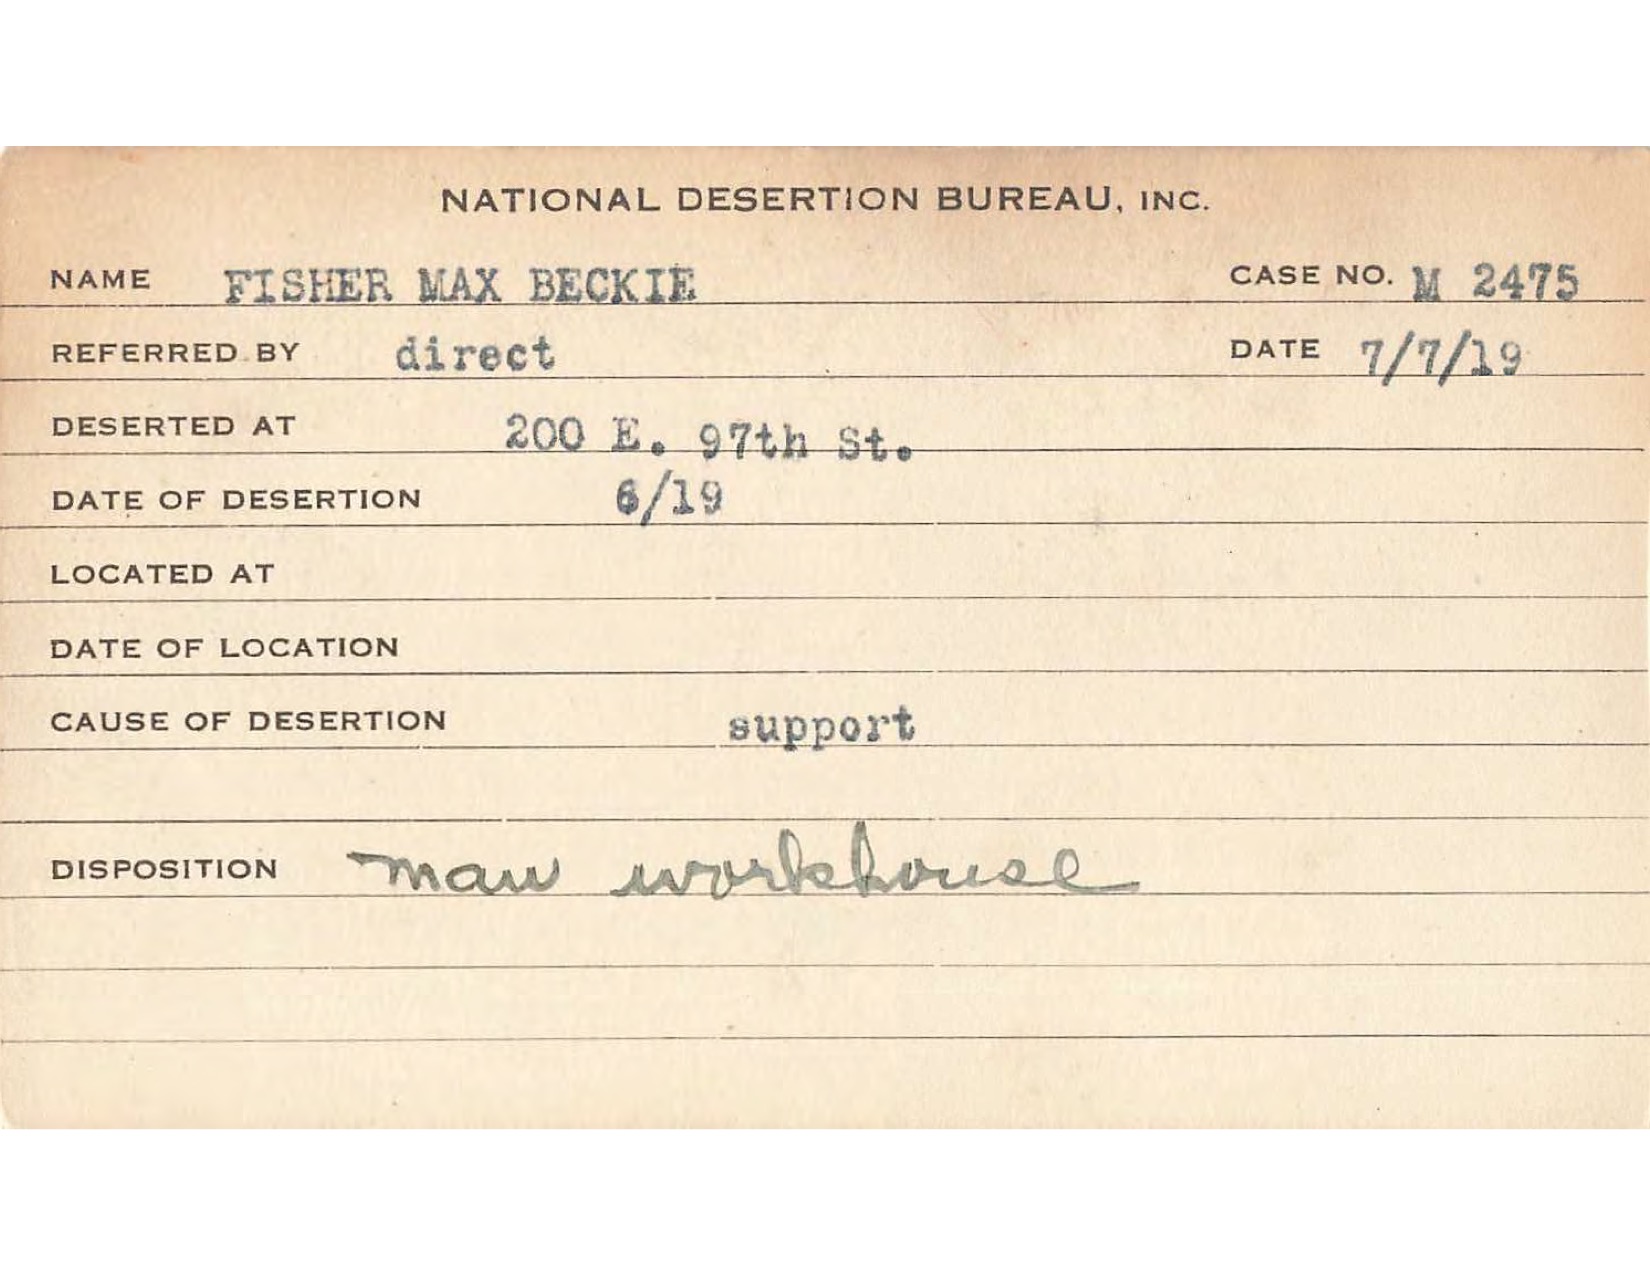 NATIONAL DESERTION BUREAU, INC.
NAME FISHER MAX BECKIE CASE NO. M 2475
REFERRED BY direct DATE 7/7/19
DESERTED AT 200 E. 97th St.
DATE OF DESERTION 6/19
LOCATED AT
DATE OF LOCATION
CAUSE OF DESERTION support
DISPOSITION man workhouse